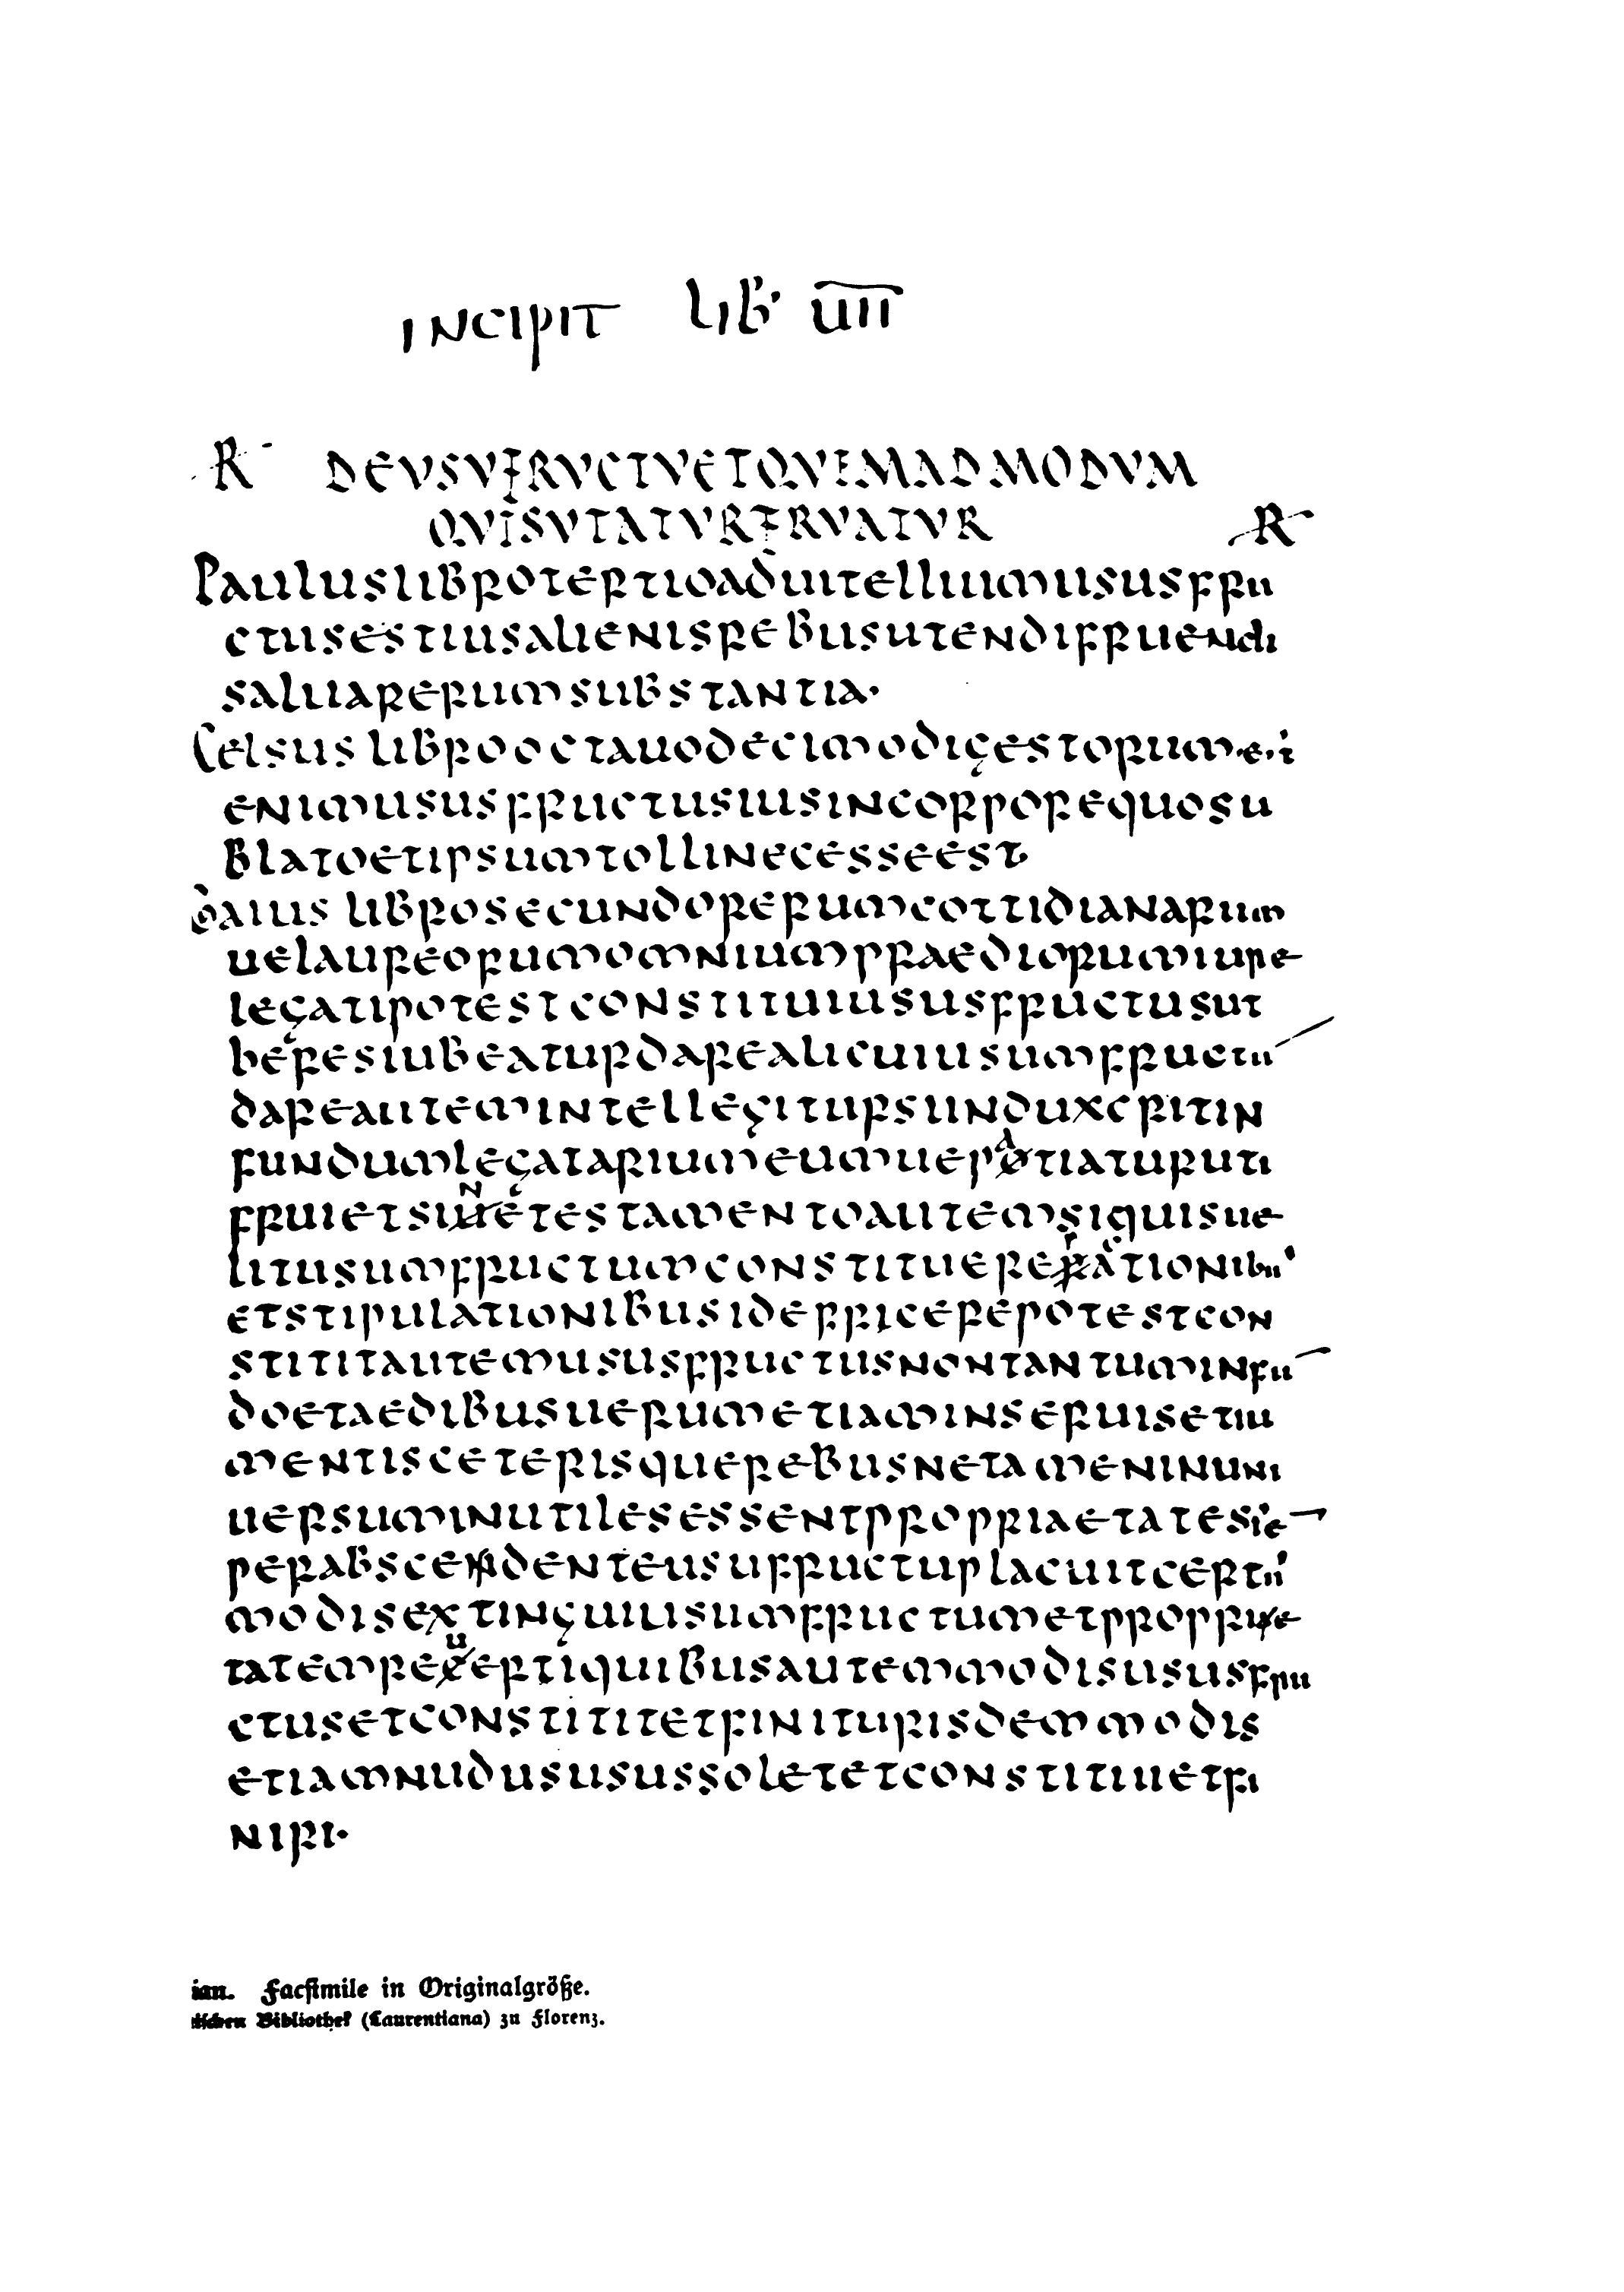 INCIPIT LIB' UII
R DEVSVFRVCTVETQVEMADMODVM
QVISVTATVRFRVATVR R
Pauluslibrotertioaduitelliumususfru
ctusestiusalienisrebusutendifruendi
saluarerumsubstantia·
Celsuslibrooctauodecimodigestorum·e·t
enimususfructusiusincorporequosu
blatoetipsumtollinecesseest·
Gaiuslibrosecundorerumcottidianarum
uelaureorumomniumpraediorumiure
legatipotestconstituiususfructusut
heresiubeaturdarealicuiusumfructū
dareautemintellegitursiinduxcritin
fundumlegatariumeumuepatiaturuti
fruietsinetestamentoautemsiquisue
litusumfructumconstituerepactionibus
etstipulationibusidefficerepotestcon
stititautemususfructusnontantuminfū
doetaedibusuerumetiaminseruisetiu
mentisceterisquerebusnetameninuni
uersuminutilesessentproprietatessē
perabscedenteusufructuplacuitcertis
modisextinguiusumfructumetproprie
tatemreuertiquibusautemmodisususfru
ctusetconstititetfinituriisdemmodis
etiamnudusususssoletetconstituietfi
niri·
ian. Facsimile in Originalgröße.
tischen Bibliothek (Laurentiana) zu Florenz.